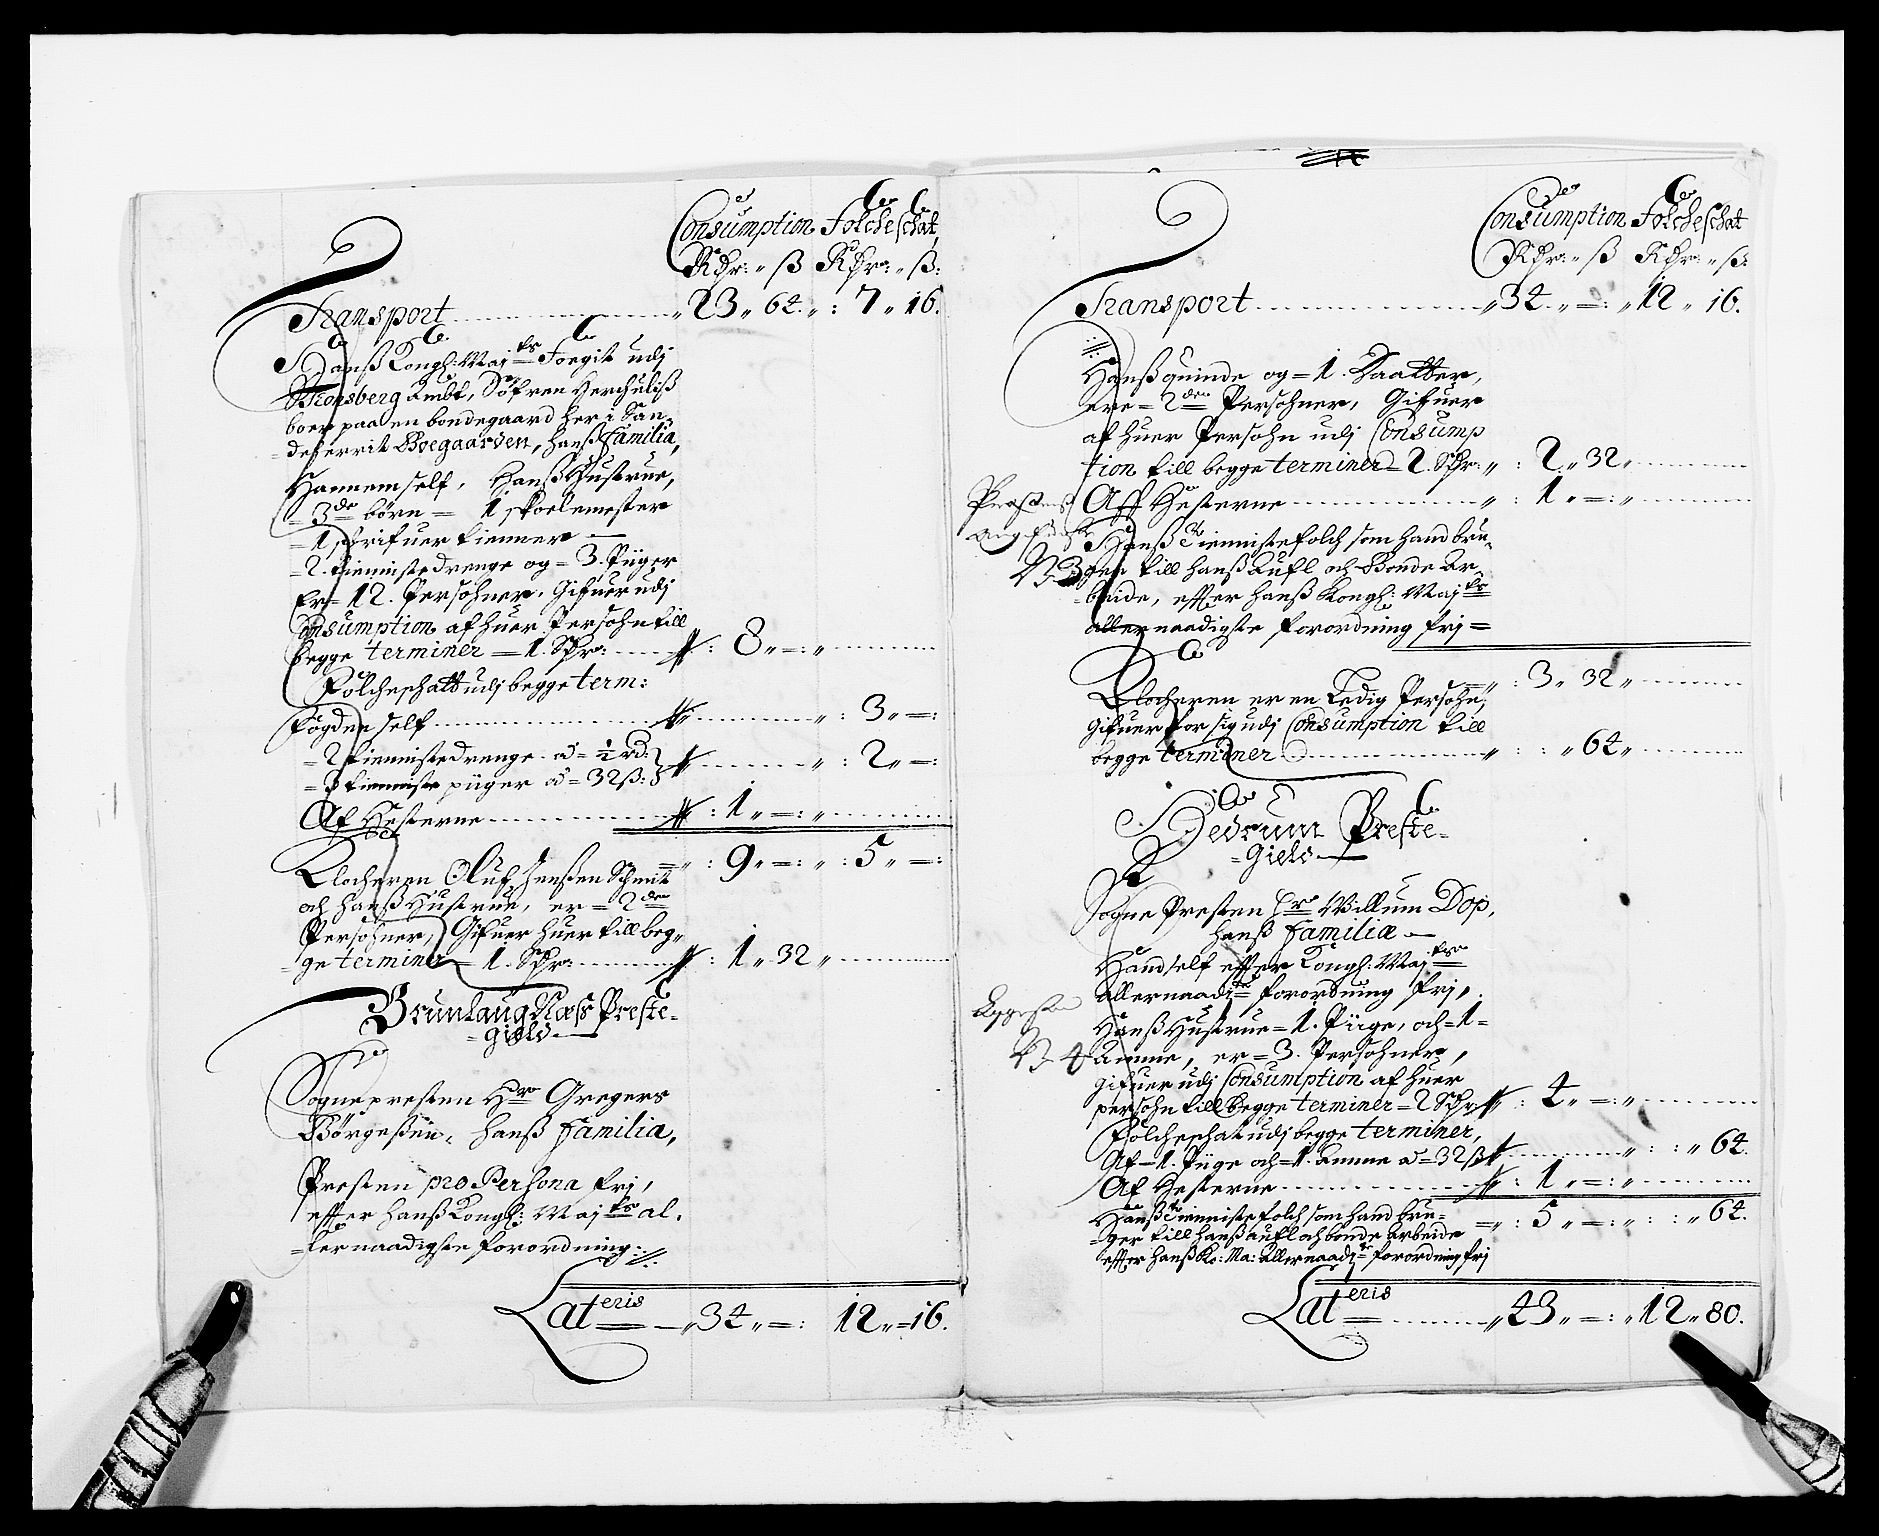 Consumption Folcheschat
Rdr: „ ß Rdr: „ ß:
Transport „ 23 „ 64 „ : 7 „ 16.
Hanß Kongl: Maj ts Foegit udj
Bronsberg Ambt, Söfren Herchuliß
boer paa en bondegaard her i San
deherrit Boegaarden, hanß familia,
Hannem self, Hanß Hustrue,
= 3 de börn = 1 skoelemester
= 1 schrifuer tienner —
= 2. tienniste drenge og = 3. Piiger
Er = 12. Persohner. Gifuer udj
Consumption af huer Persohn till
begge terminer = 1. Sldr: „ : 8 „ = : „
Folcheschatt udj begge term:
fogden self „ : 3 „ = :
= 2 tienniste drenge ad = ½ rd:
= 3 tienniste piiger ad = 32 ß: } „ : 2 „ = :
Af Hesterne „ : 1 „ = : „
= „ : 9 „ = : „ : 5 „ = :
Klocheren Oluf Jenßen Schmit
och hanß Hustrue, er = 2 de
Persohner, Gifuer huer till beg„
ge terminer = 1. Sldr: „ : 1 „ 32 „
Brunlaug Næss Preste-
= gield —
Sognepresten Hr Gregers
Börgeßen, hanß familia,
Presten pro Persona fri,
effter hanß Kongl: Maj ts al.
= lernaadigste forordning ://:
Lateris — „ 34 „ = : 12 „ = 16.
Consumption Folcheschat
Rdr: „ ß Rdr: „ ß:
Transport „ 34 „ = : „ 12 „ 16.
://:
Hanß quinde og = 1. Daatter,
ere = 2 de Persohner, Gifuer
af huer Persohn udj Consump
tion till begge terminer = 2. Sldr: „ : 2 „ 32 „
Aff Hesterne „ : 1 „ = : „
Prestens
N 3
Hanß Tienniste folch som hand bru„
ger till hanß Aufl och Bonde Ar„
beide, effter hanß Kongl: Maj ts
allernaadigste forordning fri =
= „ : 3 „ 32 „
Klocheren er en Ledig Persohn,
Gifuer for sig udj Consumption till
begge terminer „ : : „ 64 „
Hedrum Preste-
= gield —
Sogne Presten Hr Willum Dop,
hanß familiæ —
Hand self effter Kongl: Maj ts
allernaadi ste forordning fri „.
Hanß Hustrue = 1. Piige, och = 1 =
N 4
Amme, er = 3. Persohner,
gifuer udj Consumption af huer
persohn till begge terminer = 2 Sldr „ : 4 „ = : „
Folcheschat udj begge terminer,
Af = 1. Piige och = 1. Amme ad = 32 ß „ : : „ 64.
Af Hesterne „ : 1 „ = : „
= „ : 5 „ = : „ : : „ 64.
Hanß Tienniste folch som hand bru-
= ger till hanß aufl och bonde Arbeide
effter hanß Ko: Ma: allernaadi ste forordning fri
Lateris „ 43 „ = : „ 12 „ 80.